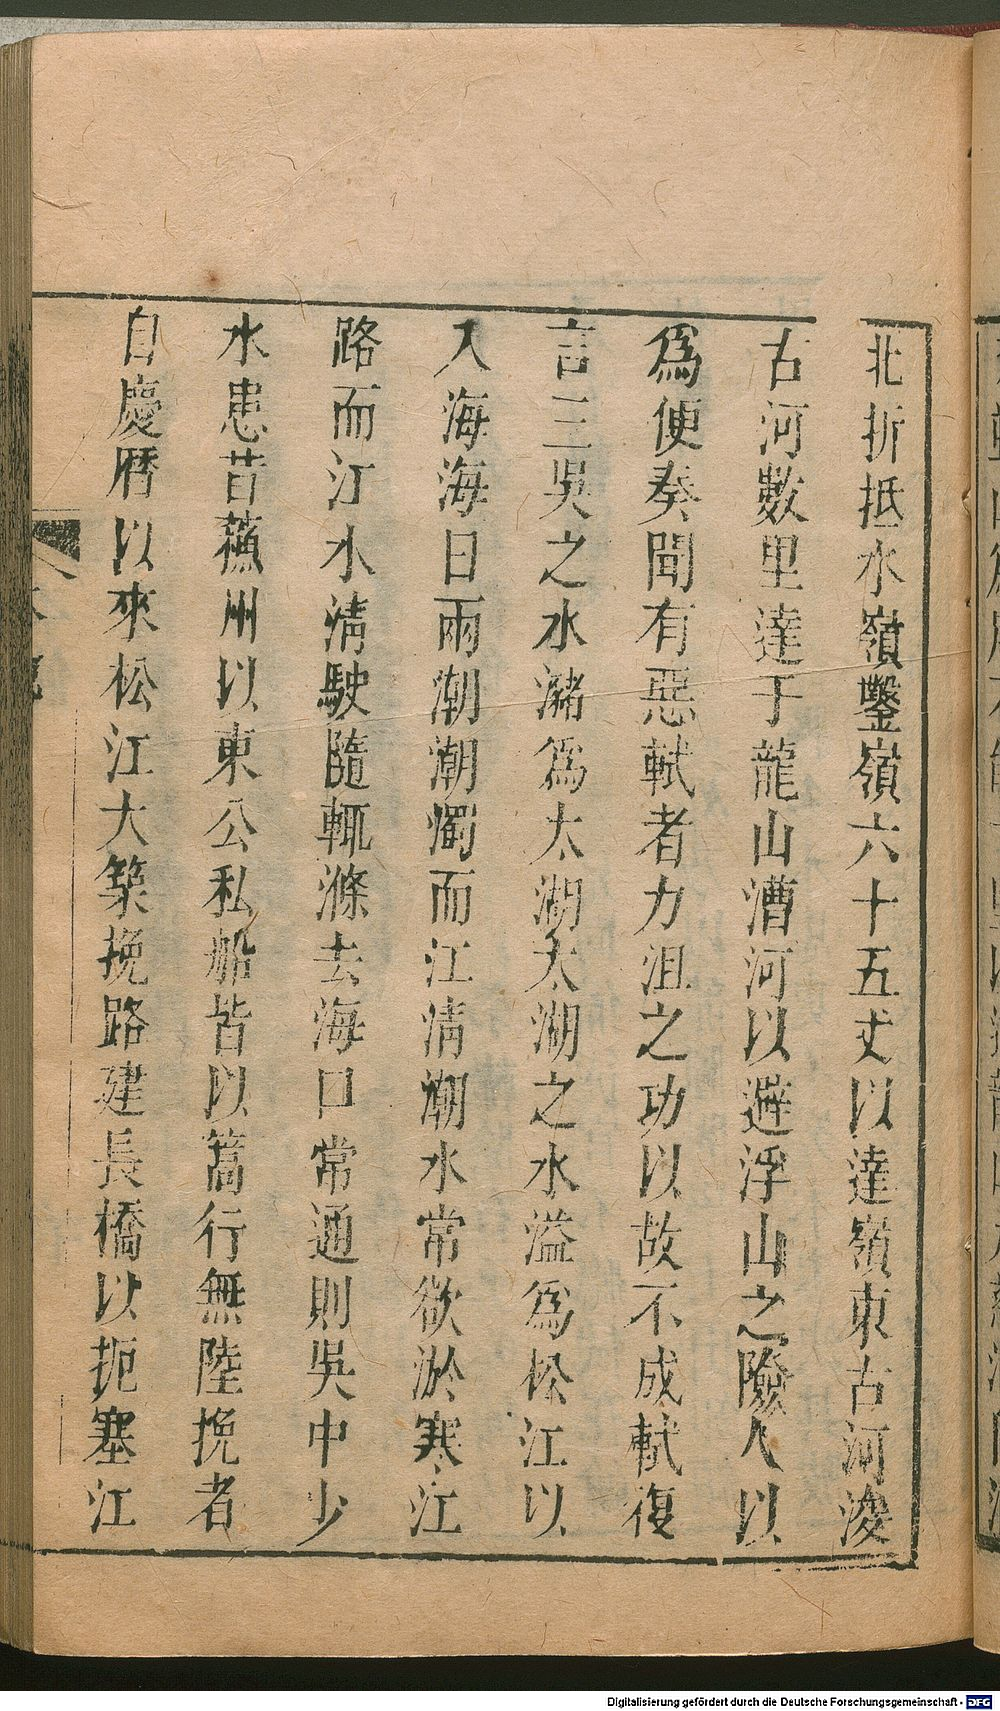 北折抵水嶺鑿嶺六十五丈以達嶺東古河浚
古河數里達于龍山漕河以避浮山之險人以
爲便奏聞有惡軾者力沮之功以故不成軾復
言三吳之水瀦爲太湖太湖之水溢爲松江以
入海海日兩潮潮濁而江清潮水常欲淤塞江
路而江水清駛隨輒滌去海口常通則吳中少
水患昔蘓州以東公私船皆以篙行無陸挽者
自慶曆以來松江大築挽路建長橋以扼塞江
Digitalisierung gefördert durch die Deutsche Forschungsgemeinschaft - DFG